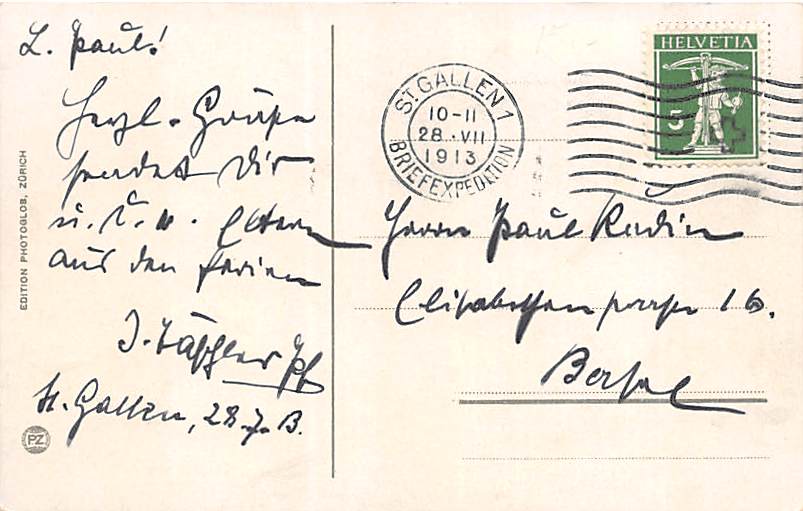 L. Paul!
Herzl. Grüße
sendet Dir
u. d. w. Eltern
aus den Ferien
St. Gallen, 28.7.13.
EDITION PHOTOGLOB, ZÜRICH
PZ
ST. GALLEN 1
10-11
28.VII
1913
BRIEFEXPEDITION
HELVETIA
5
Herrn Paul Rudin
Elisabethenstrasse 16.
Basel